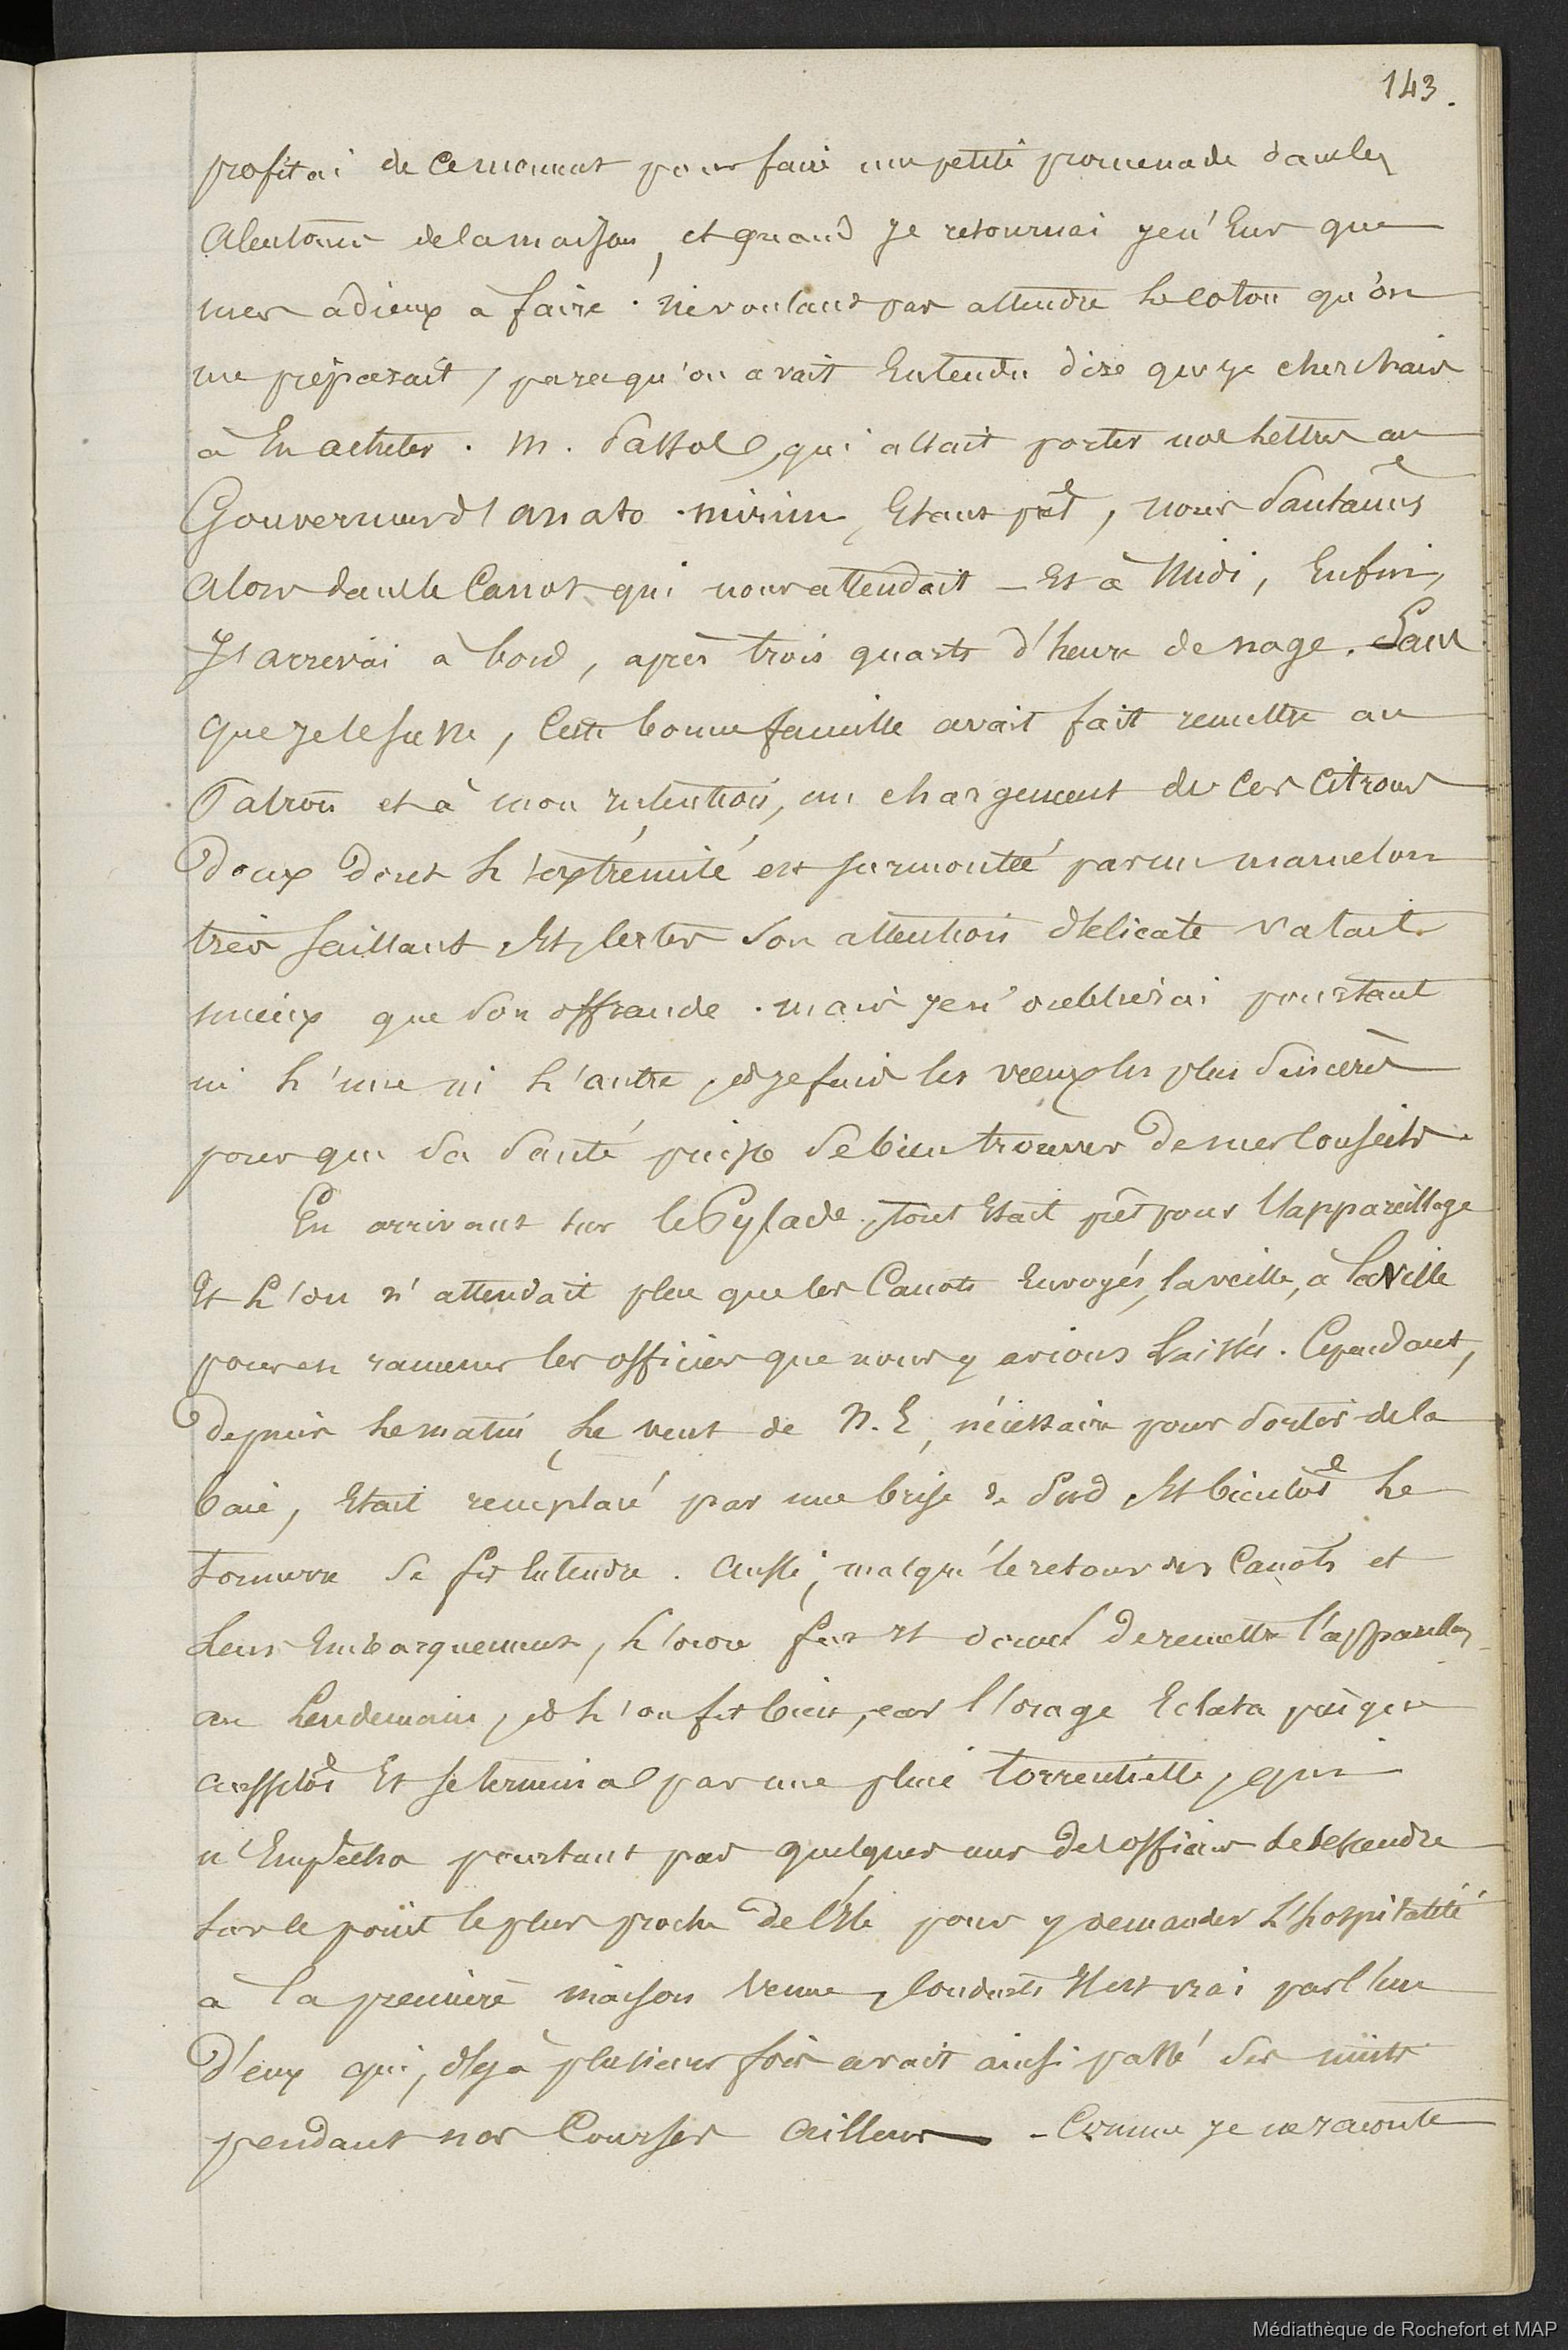 143.
profitai de ce moment pour faire une petite promenade dans les
alentours de la maison, et quand je retournai je n'eus que
mes adieux à faire. ne voulant pas attendre le coton qu'on
me préparait, parce qu'on avait entendu dire que je cherchais
à en acheter. M. qui allait porter nos lettres au
Gouverneur d'Anato-mirim, étant prêt, nous sautames
alors dans le canot qui nous attendait – Et à Midi, enfin,
J'arrivai à bord, après trois quarts d'heure de nage. Sans
que je le susse, cette bonne famille avait fait remettre au
Patron et à mon intention, un chargement de ces citrons
doux dont l'extrémité est surmontée par un mamelon
très saillant et, certes son attention délicate valait
mieux que son offrande. mais je n'oublierai pourtant
ni l'une ni l'autre, et je fais les vœux les plus sincères
pour que sa santé puisse se bien trouver de mes conseils.
En arrivant sur le Pylade, tout était prêt pour l'appareillage
Et l'on n'attendait plus que les Canots envoyés, la veille, à la Ville
pour en ramener les officiers que nous y avions laissés. Cependant,
Depuis le matin, le vent de N.E, nécessaire pour sortir de la
baie, était remplacé par une brise de Sud et bientôt le
tonnerre se fit entendre. Aussi, malgré le retour des Canots et
leur embarquement, l'ordre fut-il donné de remettre l'appareillage
au lendemain, et l'on fit bien, car l'orage éclata presque
aussitôt et se termina par une pluie torrentielle, qui
n'empêcha pourtant pas quelques uns des officiers de descendre
sur le point le plus proche de l'île pour y demander l'hospitalité
à la première maison venue, conduits il est vrai par l'un
d'eux qui, déjà plusieurs fois avait ainsi passé des nuits
pendant nos courses ailleurs – Comme je ne raconte
Médiathèque de Rochefort et MAP